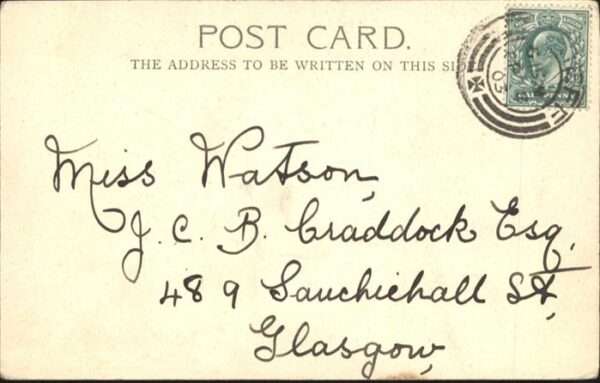 POST CARD.
THE ADDRESS TO BE WRITTEN ON THIS
Miss Watson,
J. C. B. Craddock Esq.
489 Sauchiehall St,
Glasgow,